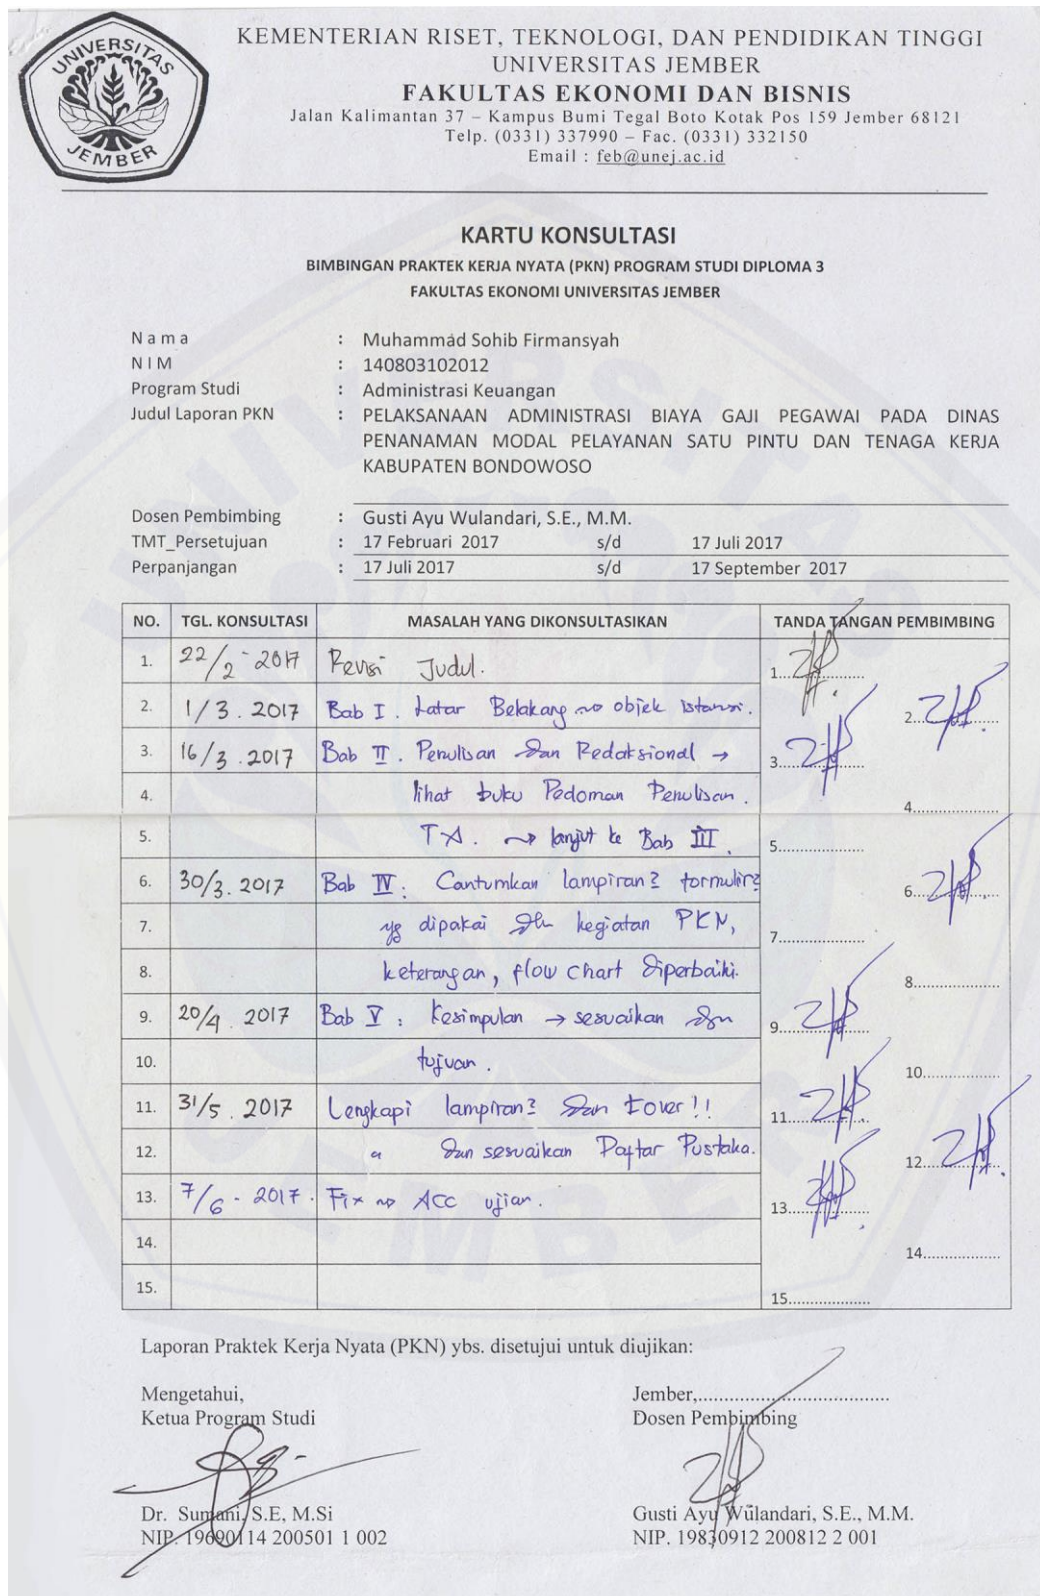 UNIVERSITAS
JEMBER
KEMENTERIAN RISET, TEKNOLOGI, DAN PENDIDIKAN TINGGI
UNIVERSITAS JEMBER
FAKULTAS EKONOMI DAN BISNIS
Jalan Kalimantan 37 – Kampus Bumi Tegal Boto Kotak Pos 159 Jember 68121
Telp. (0331) 337990 – Fac. (0331) 332150
Email : feb@unej.ac.id
KARTU KONSULTASI
BIMBINGAN PRAKTEK KERJA NYATA (PKN) PROGRAM STUDI DIPLOMA 3
FAKULTAS EKONOMI UNIVERSITAS JEMBER
N a m a : Muhammad Sohib Firmansyah
N I M : 140803102012
Program Studi : Administrasi Keuangan
Judul Laporan PKN : PELAKSANAAN ADMINISTRASI BIAYA GAJI PEGAWAI PADA DINAS
PENANAMAN MODAL PELAYANAN SATU PINTU DAN TENAGA KERJA
KABUPATEN BONDOWOSO
Dosen Pembimbing : Gusti Ayu Wulandari, S.E., M.M.
TMT_Persetujuan : 17 Februari 2017 s/d 17 Juli 2017
Perpanjangan : 17 Juli 2017 s/d 17 September 2017
NO. TGL. KONSULTASI MASALAH YANG DIKONSULTASIKAN TANDA TANGAN PEMBIMBING
1. 22/2 - 2017 Revisi Judul. 1....................
2. 1/3 . 2017 Bab I . Latar Belakang objek istansi. 2....................
3. 16/3 . 2017 Bab II . Penulisan dan Redaksional → 3....................
4. lihat buku Pedoman Penulisan. 4....................
5. TA. → lanjut ke Bab III. 5....................
6. 30/3 . 2017 Bab IV : Cantumkan lampiran2 formulir2 6....................
7. yg dipakai dlm kegiatan PKN, 7....................
8. keterangan, flow chart diperbaiki. 8....................
9. 20/4 . 2017 Bab V : Kesimpulan → sesuaikan dgn 9....................
10. tujuan. 10..................
11. 31/5 . 2017 Lengkapi lampiran2 dan cover!! 11..................
12. dan sesuaikan Daftar Pustaka. 12..................
13. 7/6 - 2017. Fix → ACC ujian. 13..................
14. 14..................
15. 15..................
Laporan Praktek Kerja Nyata (PKN) ybs. disetujui untuk diujikan:
Mengetahui, Jember,......................................
Ketua Program Studi Dosen Pembimbing
Dr. Sumani, S.E, M.Si Gusti Ayu Wulandari, S.E., M.M.
NIP. 19690114 200501 1 002 NIP. 19830912 200812 2 001